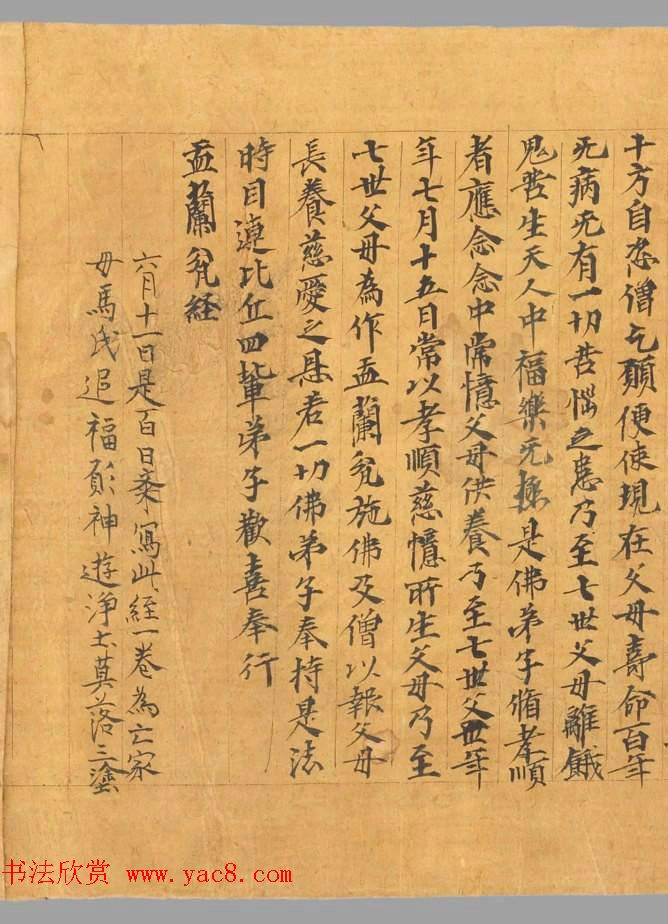 十方自恣僧乞願便使現在父母壽命百年
无病无有一切苦惱之患乃至七世父母離餓
鬼苦生天人中福樂无極是佛弟子脩孝順
者應念念中常憶父母供養乃至七世父母年
年七月十五日常以孝順慈憶所生父母乃至
七世父母為作盂蘭瓫施佛及僧以報父母
長養慈愛之恩若一切佛弟子奉持是法
時目連比丘四輩弟子歡喜奉行
盂蘭瓫経
六月十一日是百日齋寫此經一卷為亡家
母馬氏追福願神遊淨土莫落三塗
书法欣赏 www.yac8.com